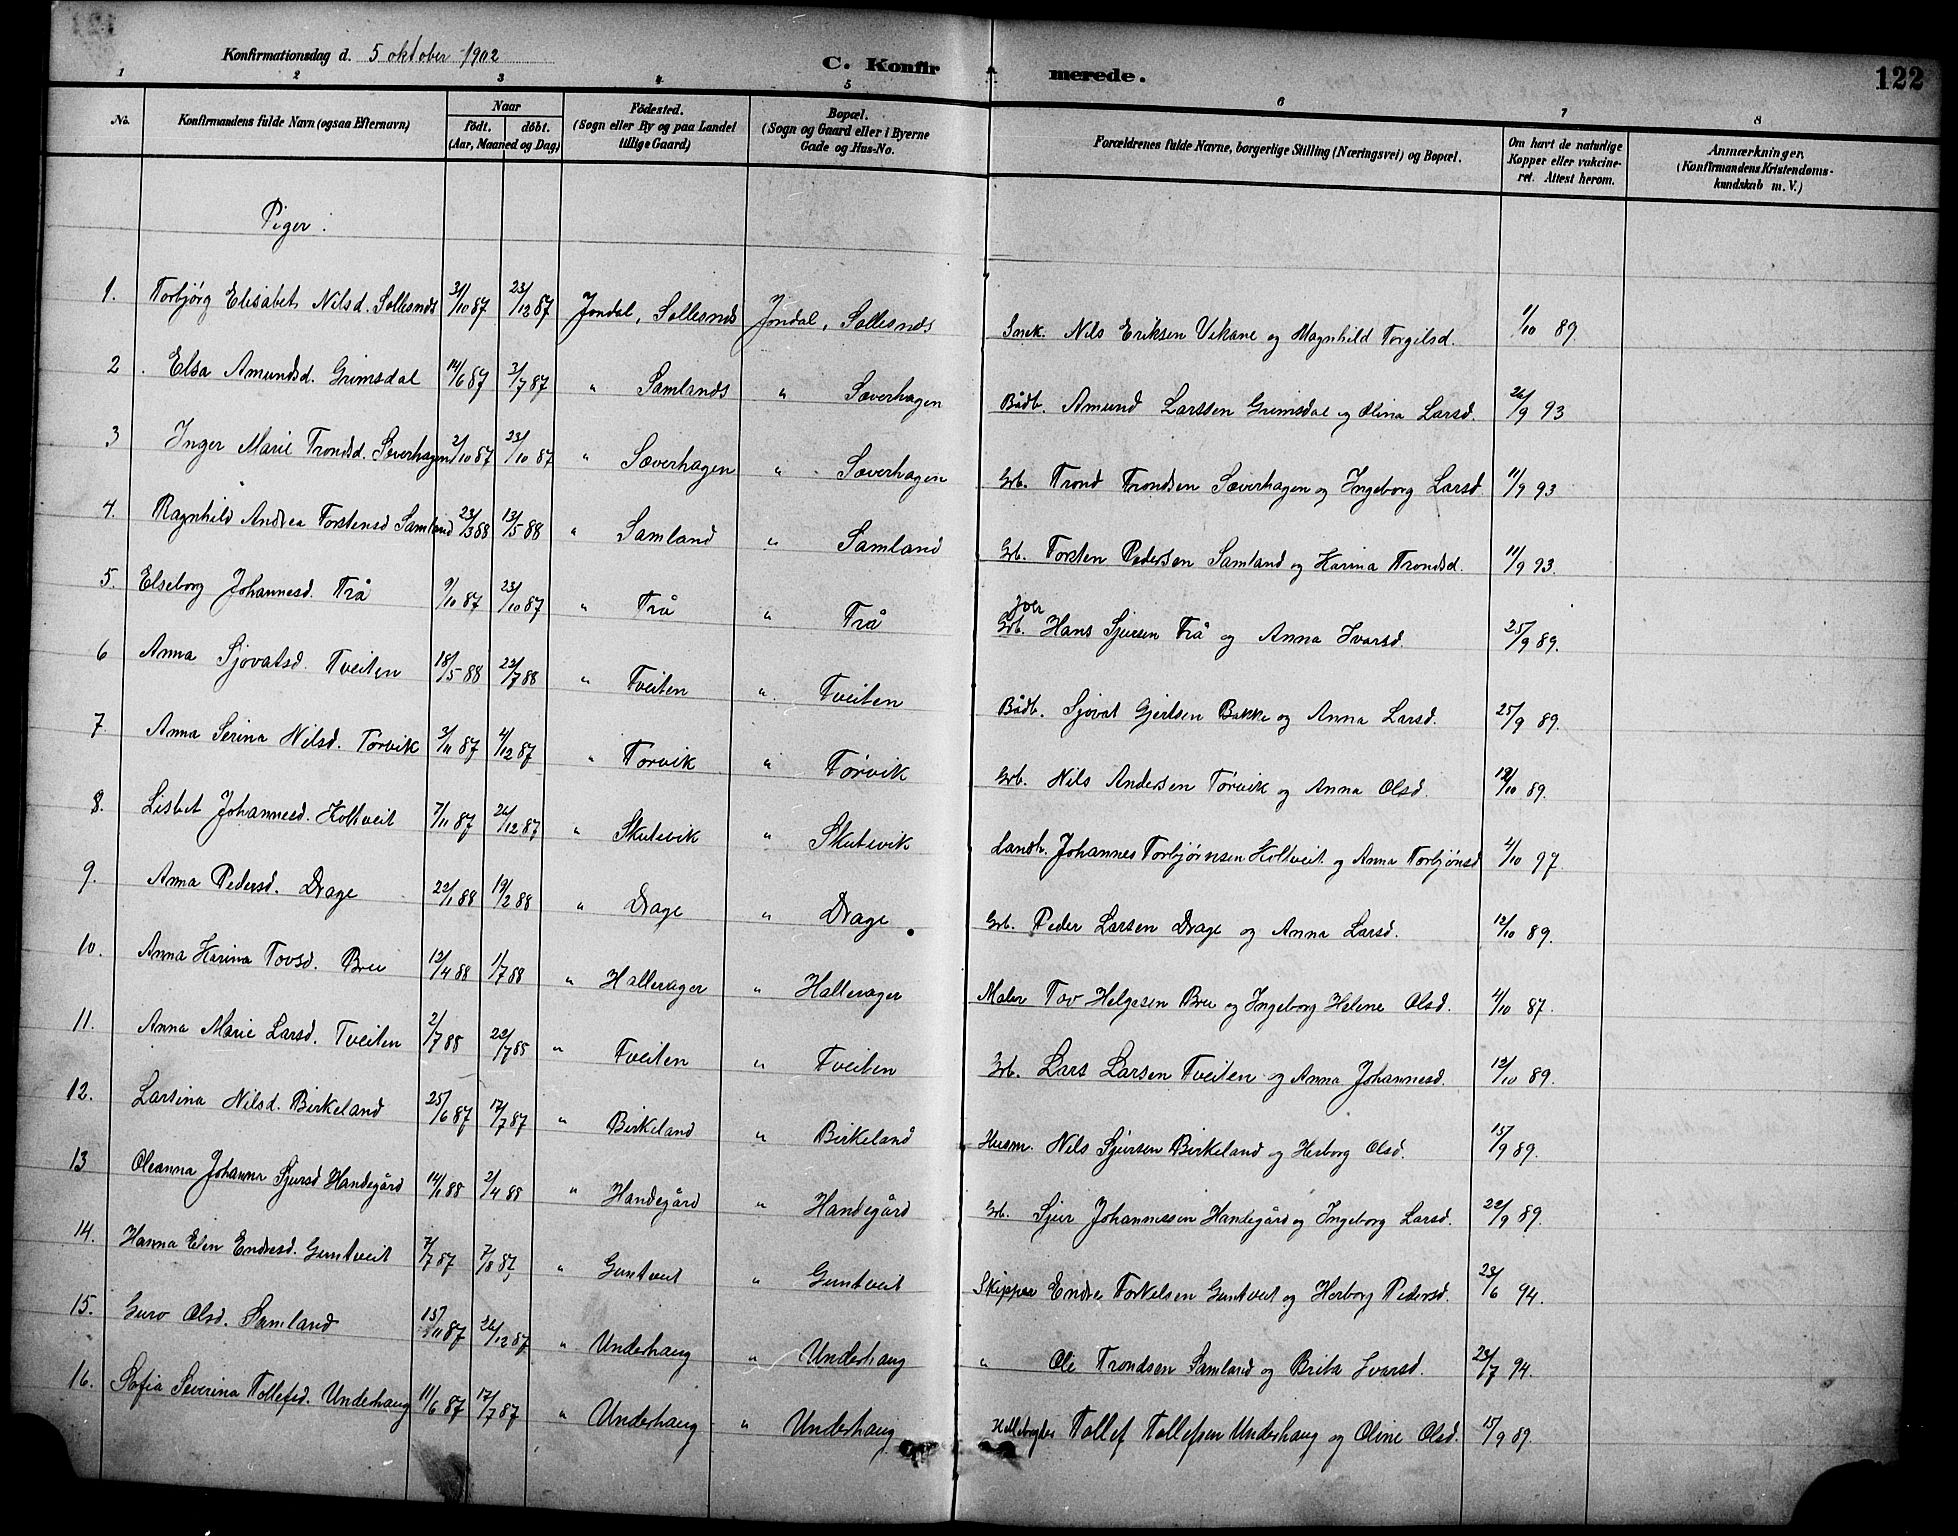 Konfirmationsdag d. 5 oktober 1902
C. Konfirmerede.
122
1 2 3 4 5 6 7 8
No.
Konfirmandens fulde Navn (ogsaa Efternavn)
Naar
födt. döbt.
(Aar, Maaned og Dag)
Födested.
(Sogn eller By og paa Landet
tillige Gaard)
Bopæl.
(Sogn og Gaard eller i Byerne
Gade og Hus-No.
Forældrenes fulde Navne, borgerlige Stilling (Næringsvei) og Bopæl.
Om havt de naturlige
Kopper eller vakcine-
ret. Attest herom.
Anmærkninger.
(Konfirmandens Kristendoms-
kundskab m. V.)
Piger.
1. Torbjørg Elisabet Nilsd. Sollesnæs 31/10 87 23/12 87 Jondal, Sollesnæs Jondal, Sollesnæs Snek. Nils Eriksen Vikane og Magnhild Torgilsd. 1/10 89.
2. Elsa Amundsd. Grimsdal 14/6 87 3/7 87 " Samlands " Sæverhagen Bådb. Amund Larssen Grimsdal og Elina Larsd. 26/9 93
3 Inger Marie Trondsd. Severhagen 2/10 87 23/10 87 " Sæverhagen " Sæverhagen Grb. Trond Trondsen Sæverhagen og Ingeborg Larsd 11/9 93
4. Ragnhild Andrea Torstensd Samland 23/3 88 13/5 88 " Samland " Samland Grb. Torsten Pedersen Samland og Karina Trondsd. 11/9 93.
5. Elseborg Johannesd. Trå 9/10 87 23/10 87 " Trå " Trå Grb. Hans Sjursen Trå og Anna Ivarsd. 25/9 89.
6 Anna Sjovatsd. Tveiten 18/5 88 22/7 88 " Tveiten " Tveiten Bådb. Sjovat Gjertsen Bakke og Anna Larsd. 25/9 89.
7. Anna Serina Nilsd. Torvik 3/11 87 4/12 87 " Torvik " Tørvik Grb. Nils Andersen Tørvik og Anna Olsd. 12/10 89.
8. Lisbet Johannesd. Holtveit 7/11 87 26/12 87 " Skutevik " Skutevik Landh. Johannes Torbjørnsen Holtveit og Anna Torbjønsd 4/10 97.
9. Anna Pedersd. Drage 22/1 88 19/2 88 " Drage " Drage Grb. Peder Larsen Drage og Anna Larsd. 12/10 89.
10. Anna Karina Tovsd. Bree 12/4 88 1/7 88 " Hallerager " Hallerager Maler Tov Helgesen Bree og Ingeborg Helene Olsd. 4/10 87.
11. Anna Marie Larsd. Tveiten 2/7 88 22/7 88 " Tveiten " Tveiten Grb. Lars Larsen Tveiten og Anna Johannesd. 12/10 89.
12. Larsina Nilsd. Birkeland 25/6 87 17/7 87 " Birkeland " Birkeland Husm. Nils Sjursen Birkeland og Herborg Olsd. 15/9 89.
13 Oleanna Johanna Sjursd Handegård 14/1 88 2/4 88 " Handegård " Handegård Grb. Sjur Johannessen Handegård og Ingeborg Larsd. 22/9 89.
14. Hanna Elen Endresd. Guntveit 7/7 87 7/8 87, " Guntveit " Guntveit Skipper Endre Torkelsen Guntveit og Herborg Pedersd. 23/6 94.
15. Guro Olsd. Samland 15/11 87 26/12 87 " Underhaug " Underhaug " Ole Trondsen Samland og Brita Ivarsd. 23/7 94.
16. Sofia Severina Tollefsd. Underhaug 11/6 87 17/7 87 " Underhaug " Underhaug Tollef Tollefsen Underhaug og Oline Olsd. 15/9 89.